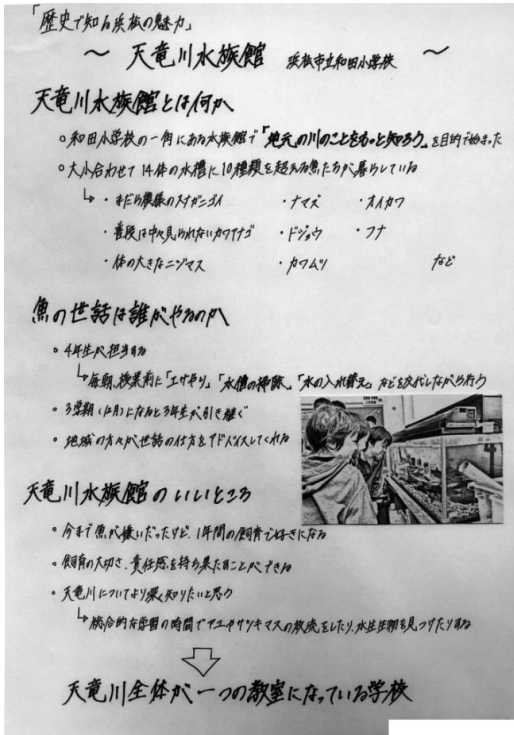 「歴史で知る浜松の魅力」
～ 天竜川水族館 浜松市立和田小学校 ～
天竜川水族館とは何か
○ 和田小学校の一角にある水族館で「地元の川のことをもっと知ろう」を目的で始まった
○ 大小合わせて14体の水槽に10種類を超える魚たちが暮らしている
↳ ・まだら模様のスナガニゴイ ・ナマズ ・オイカワ
・普段は中々見られないカワアナゴ ・ドジョウ ・フナ
・体の大きなニジマス ・カワムツ など
魚の世話は誰がやるのか
○ 4年生が担当する
↳ 毎朝、授業前に「エサやり」「水槽の掃除」「水の入れ替え」などを交代しながら行う
○ 3学期(1月)になると3年生が引き継ぐ
○ 地域の方々が世話の仕方をアドバイスしてくれる
天竜川水族館のいいところ
○ 今まで魚が嫌いだったけど、1年間の飼育で好きになる
○ 飼育の大切さ、責任感を持ち果たすことができる
○ 天竜川についてより深く知りたいと思う
↳ 総合的な学習の時間でアユやサツキマスの放流をしたり、水生生物を見つけたりする
天竜川全体が一つの教室になっている学校